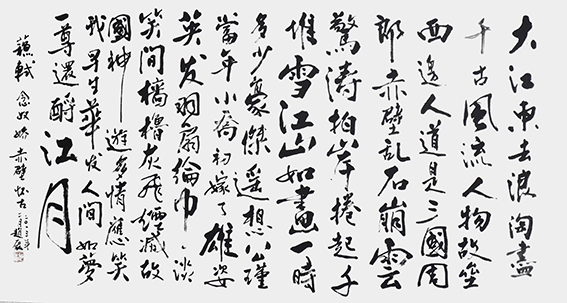 大江東去浪淘盡
千古風流人物故壘
西邊人道是三國周
郎赤壁乱石崩雲
驚濤拍岸捲起千
堆雪江山如畫一時
多少豪傑遥想公瑾
當年小喬初嫁了雄姿
英发羽扇綸巾谈
笑間檣櫓灰飛煙滅故
國神遊多情應笑
我早生華发人間如夢
一尊還酹江月
蘇軾念奴嬌赤壁怀古